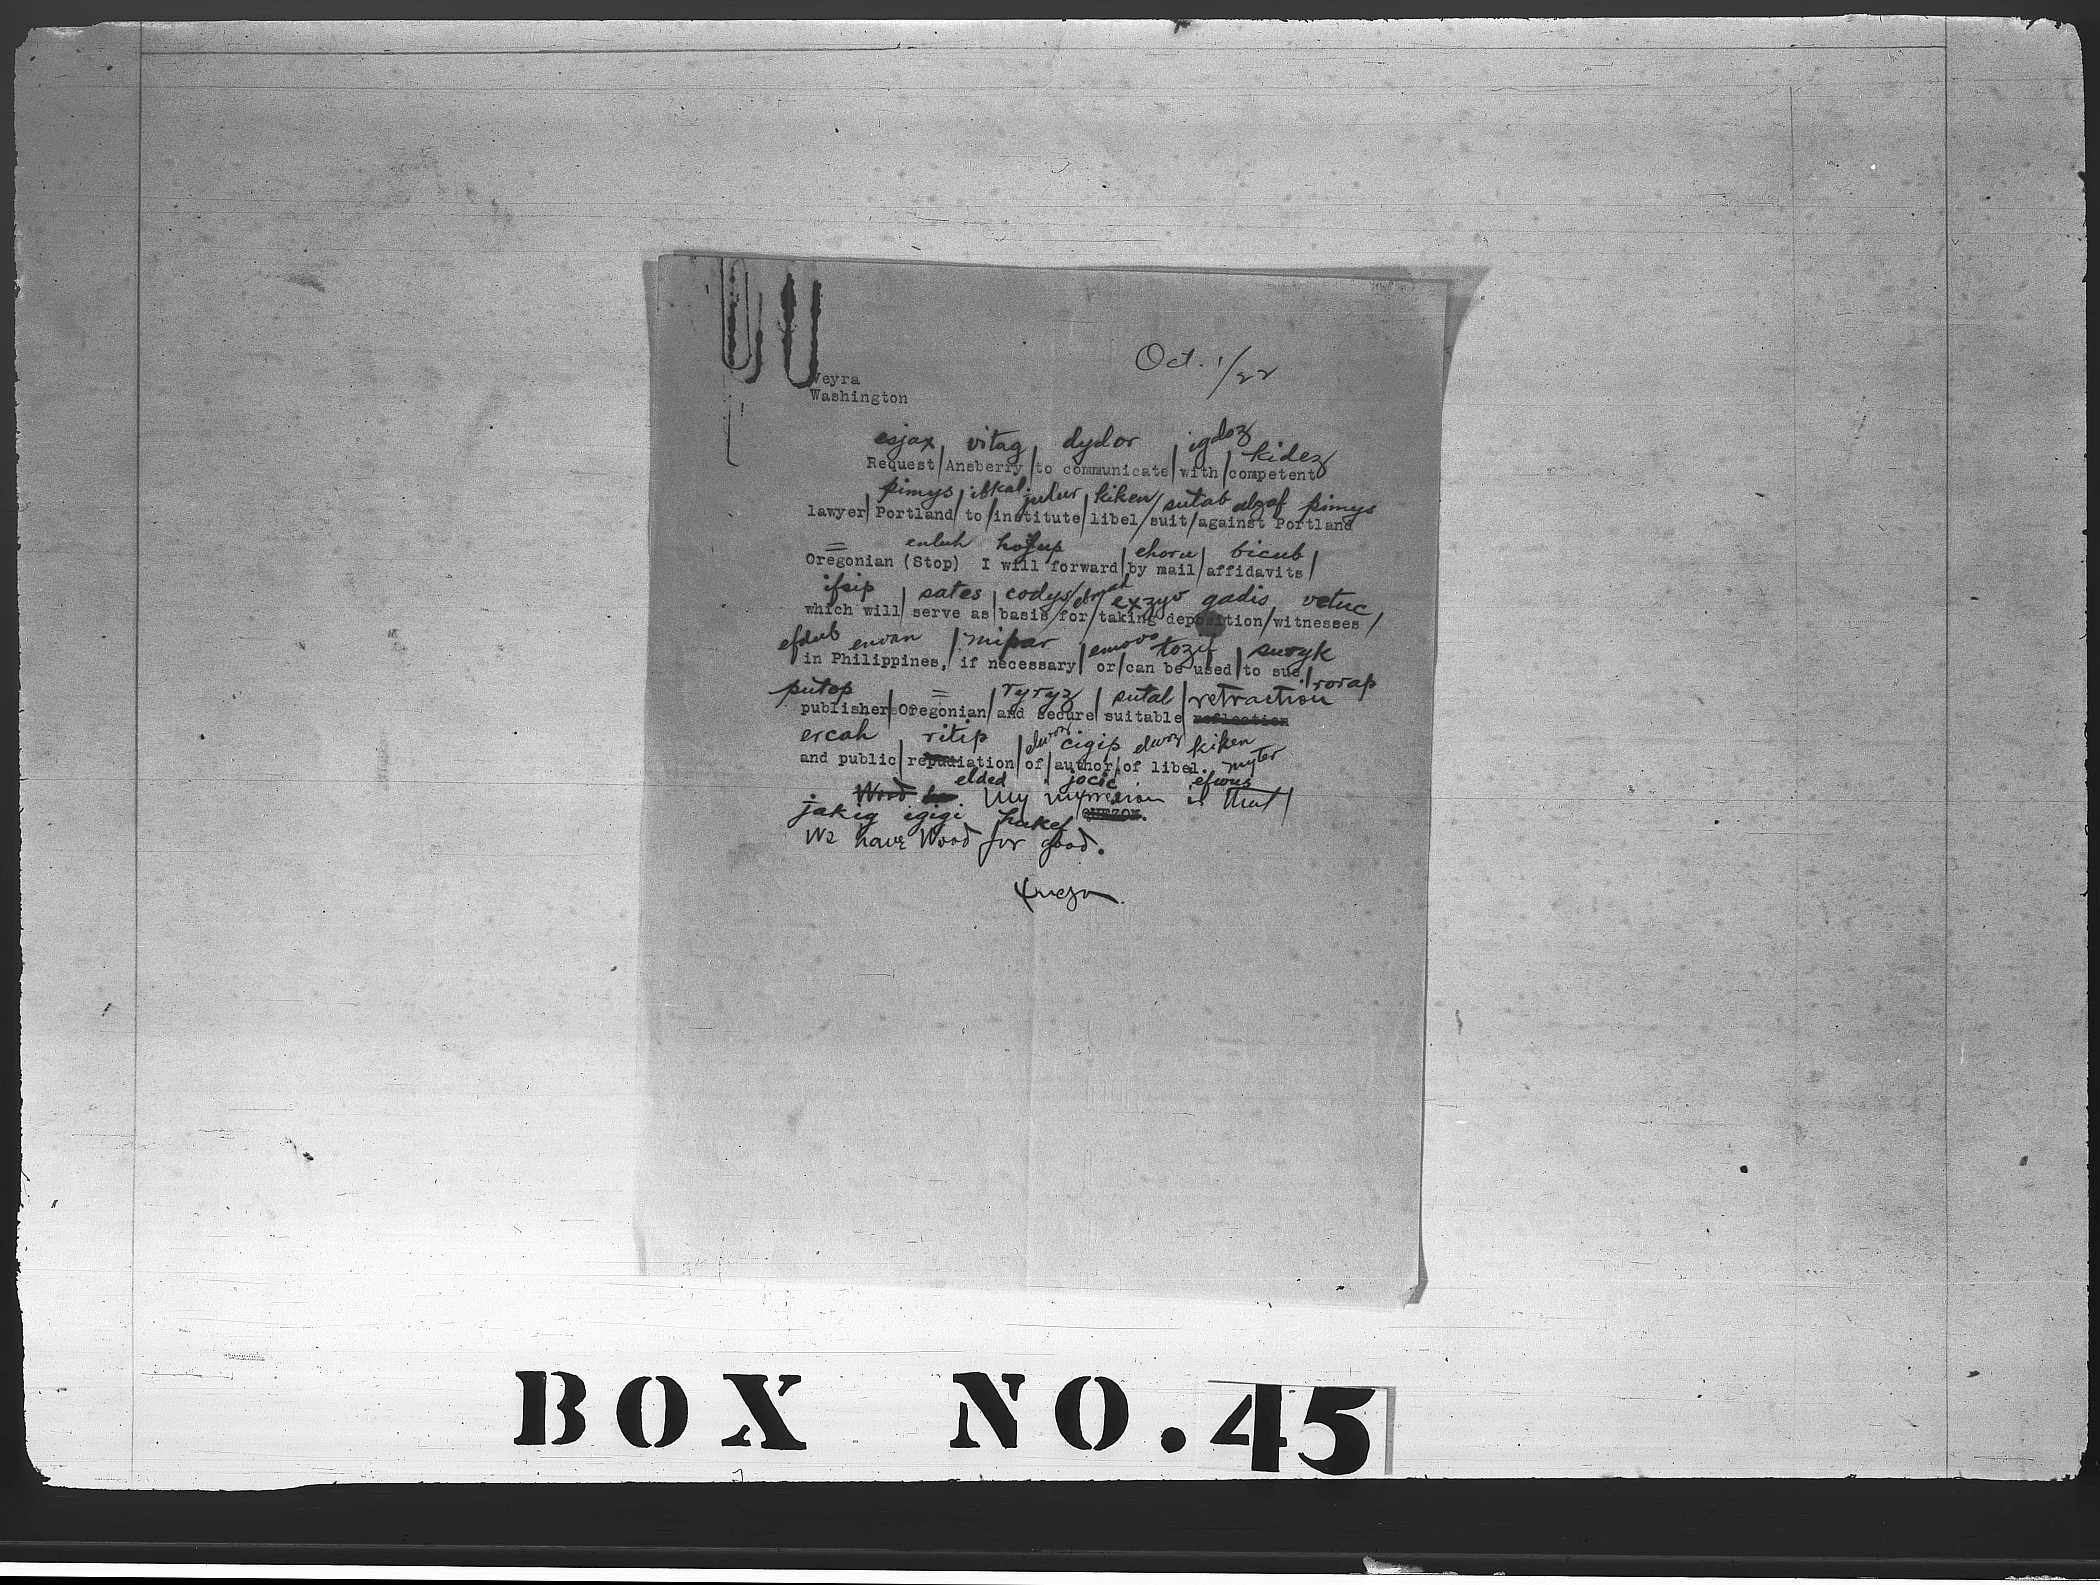 Oct. 1/22
Veyra
Washington
esjax vitag dydor igdoz kidez
Request/Ansberry/to communicate/with/competent
pimys/ibkal julur kiken/sutab alzof pimys
lawyer/Portland/to/institute/libel/suit/against Portland
= enluh hofup ehoru bicub
Oregonian (Stop) I will forward/by mail/affidavits/
ifsip sates codys exzyv gadis vetuc
which will/serve as/basis/for/taking deposition/witnesses/
efdub envan mipar emovo tozif suvyk
in Philippines, if necessary/or/can be used/to sue/rorap
putop = ryryz sutal retraction
publisher/Oregonian/and secure/suitable
ercah ritip cigip kiken
and public/repudiation/of/author/of libel. myter
elded jocic efwus
Wood My impression is that/
jakig igigi hakef QUEZON.
We have Wood for good.
Quezon
BOX NO. 45